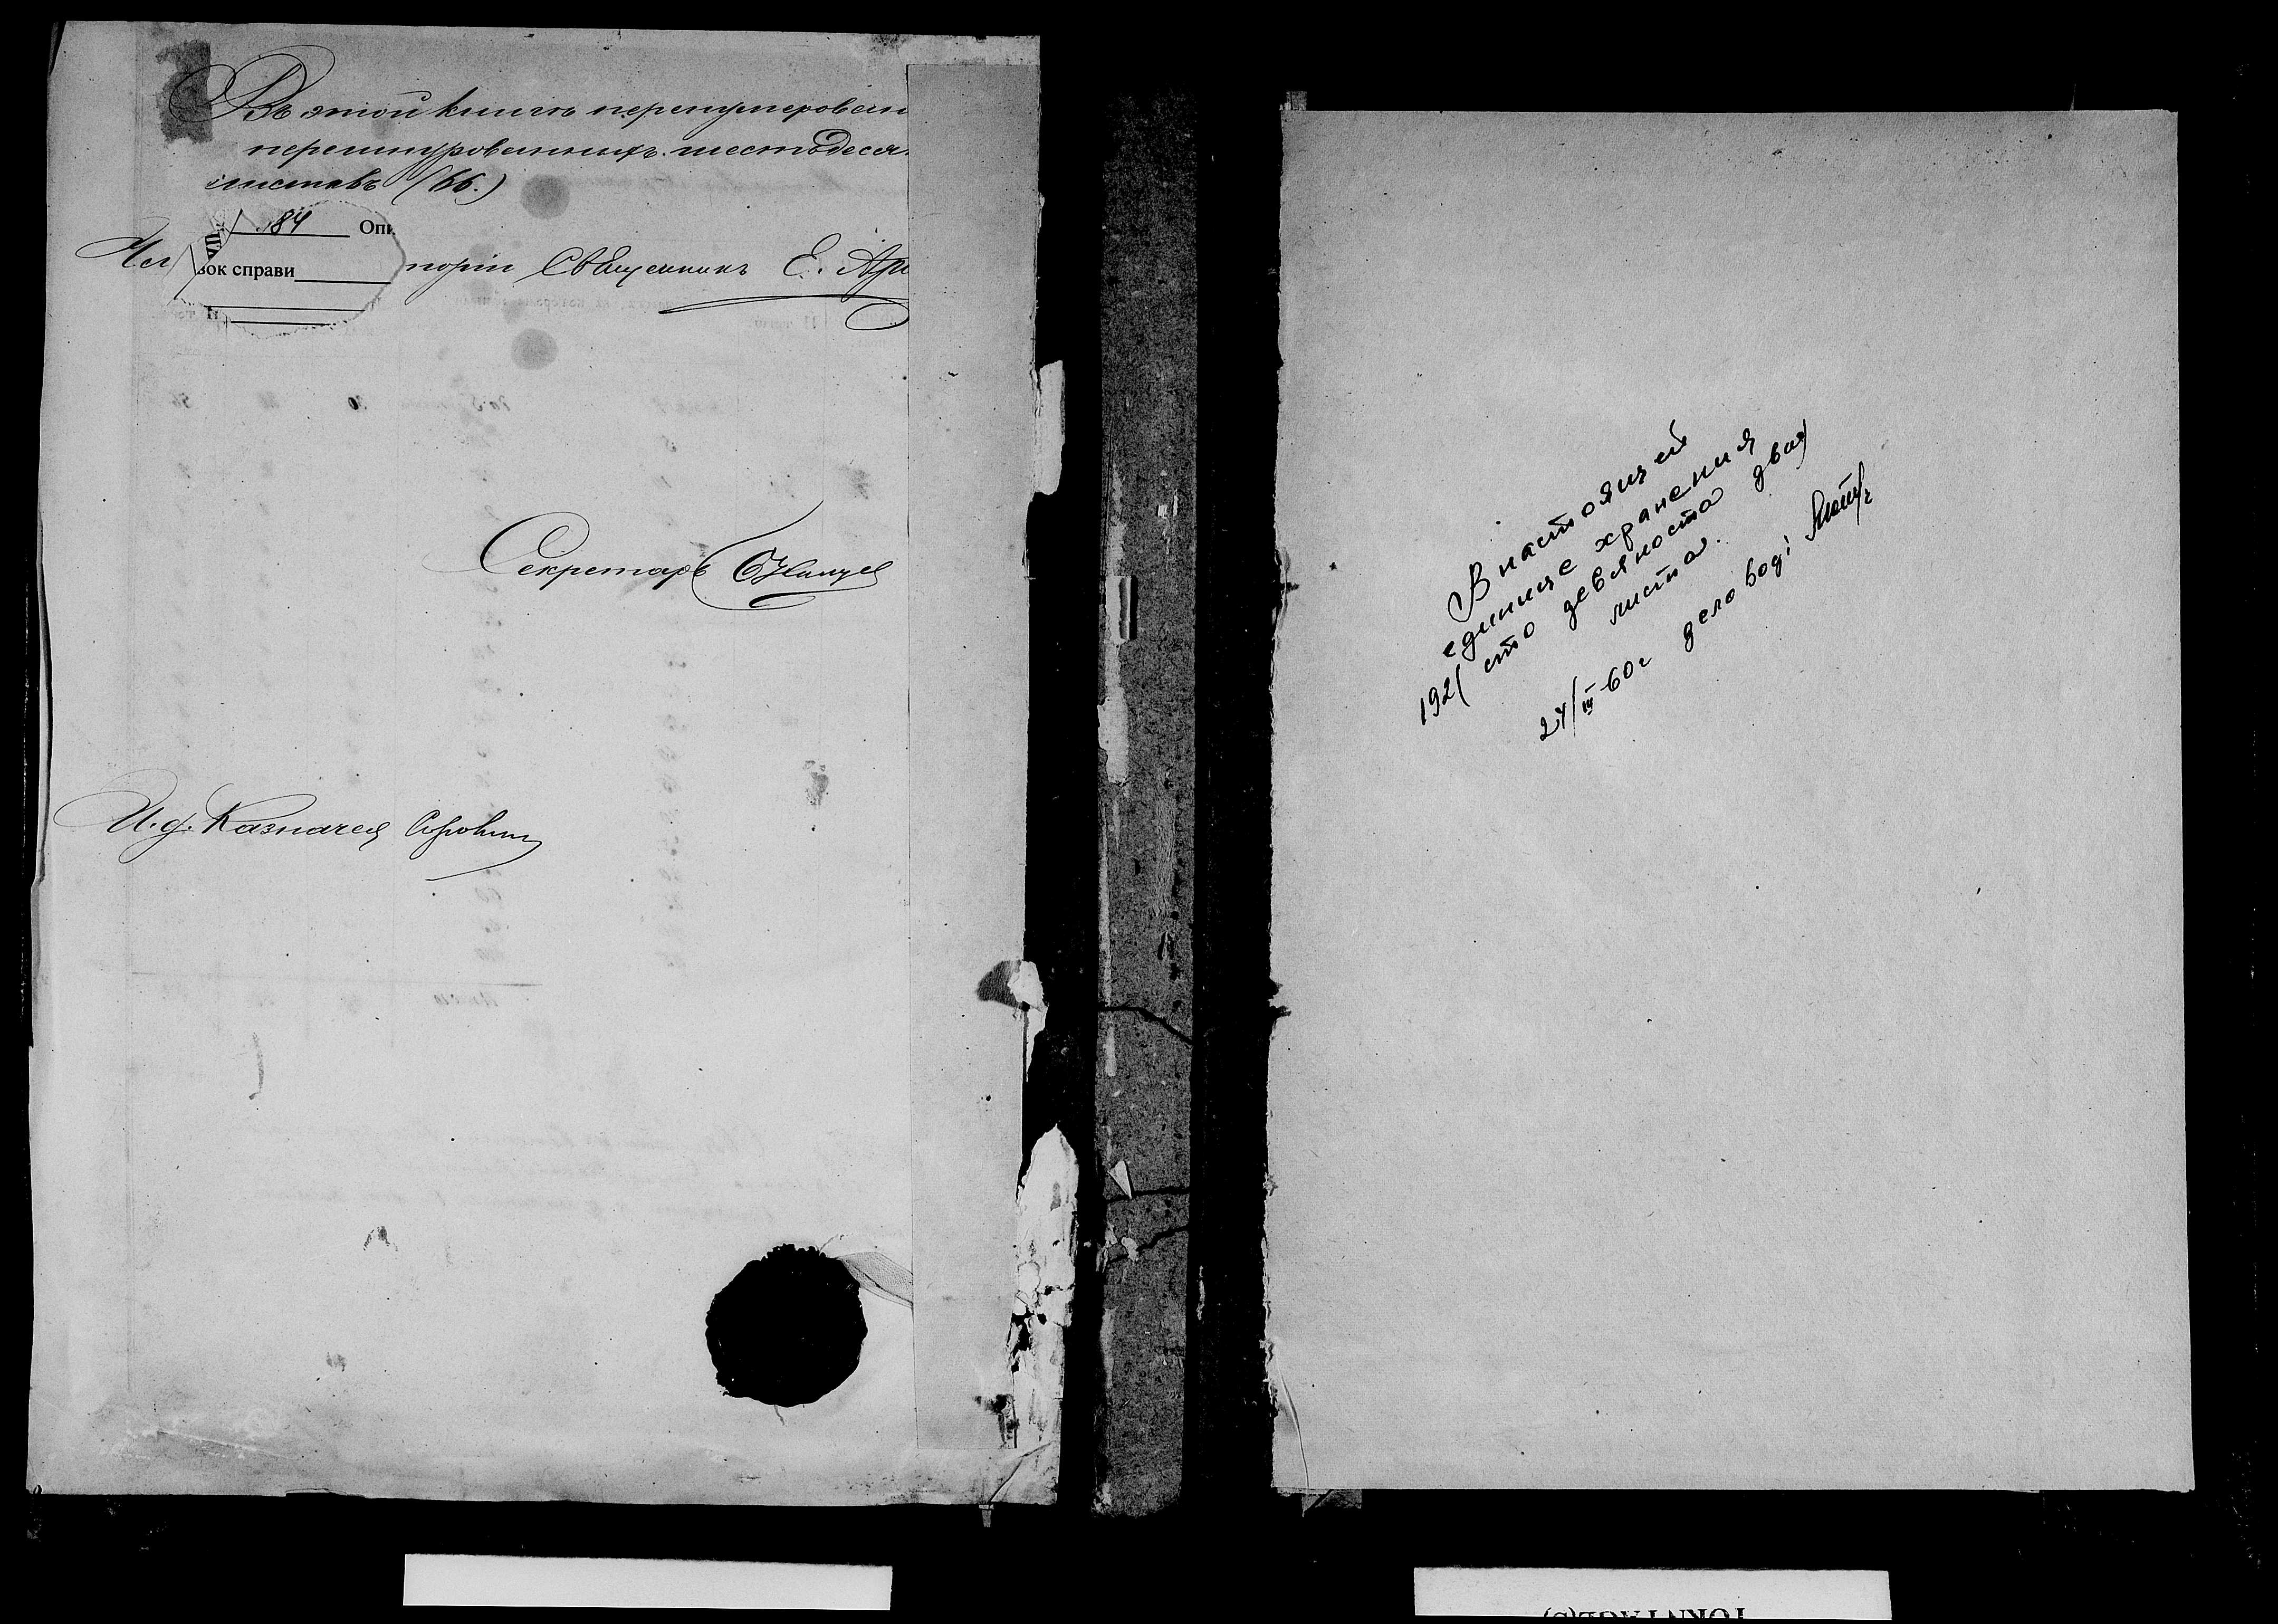 Въ этой книгѣ перенумерован
перешнурованныхъ шестьдеся
листовъ (66.)
184 Опи
зок справи
Чл торіи Священникъ Е.
Секретарь
И. д. Казначея
В настоящей
единице хранения
192 (сто девяносто два)
листа.
24/III-60г деловод: